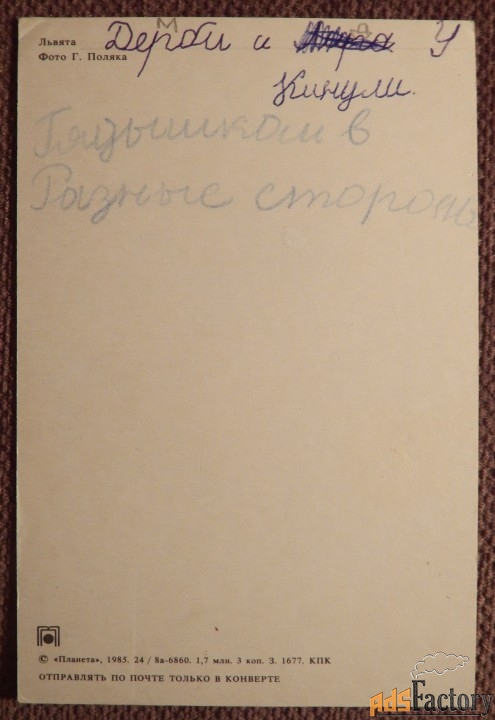 Львята Дерби и У
Фото Г. Поляка
Кинули.
в
Разные стороны
© «Планета», 1985. 24 / 8а-6860. 1,7 млн. 3 коп. З. 1677. КПК
ОТПРАВЛЯТЬ ПО ПОЧТЕ ТОЛЬКО В КОНВЕРТЕ
adsFactory